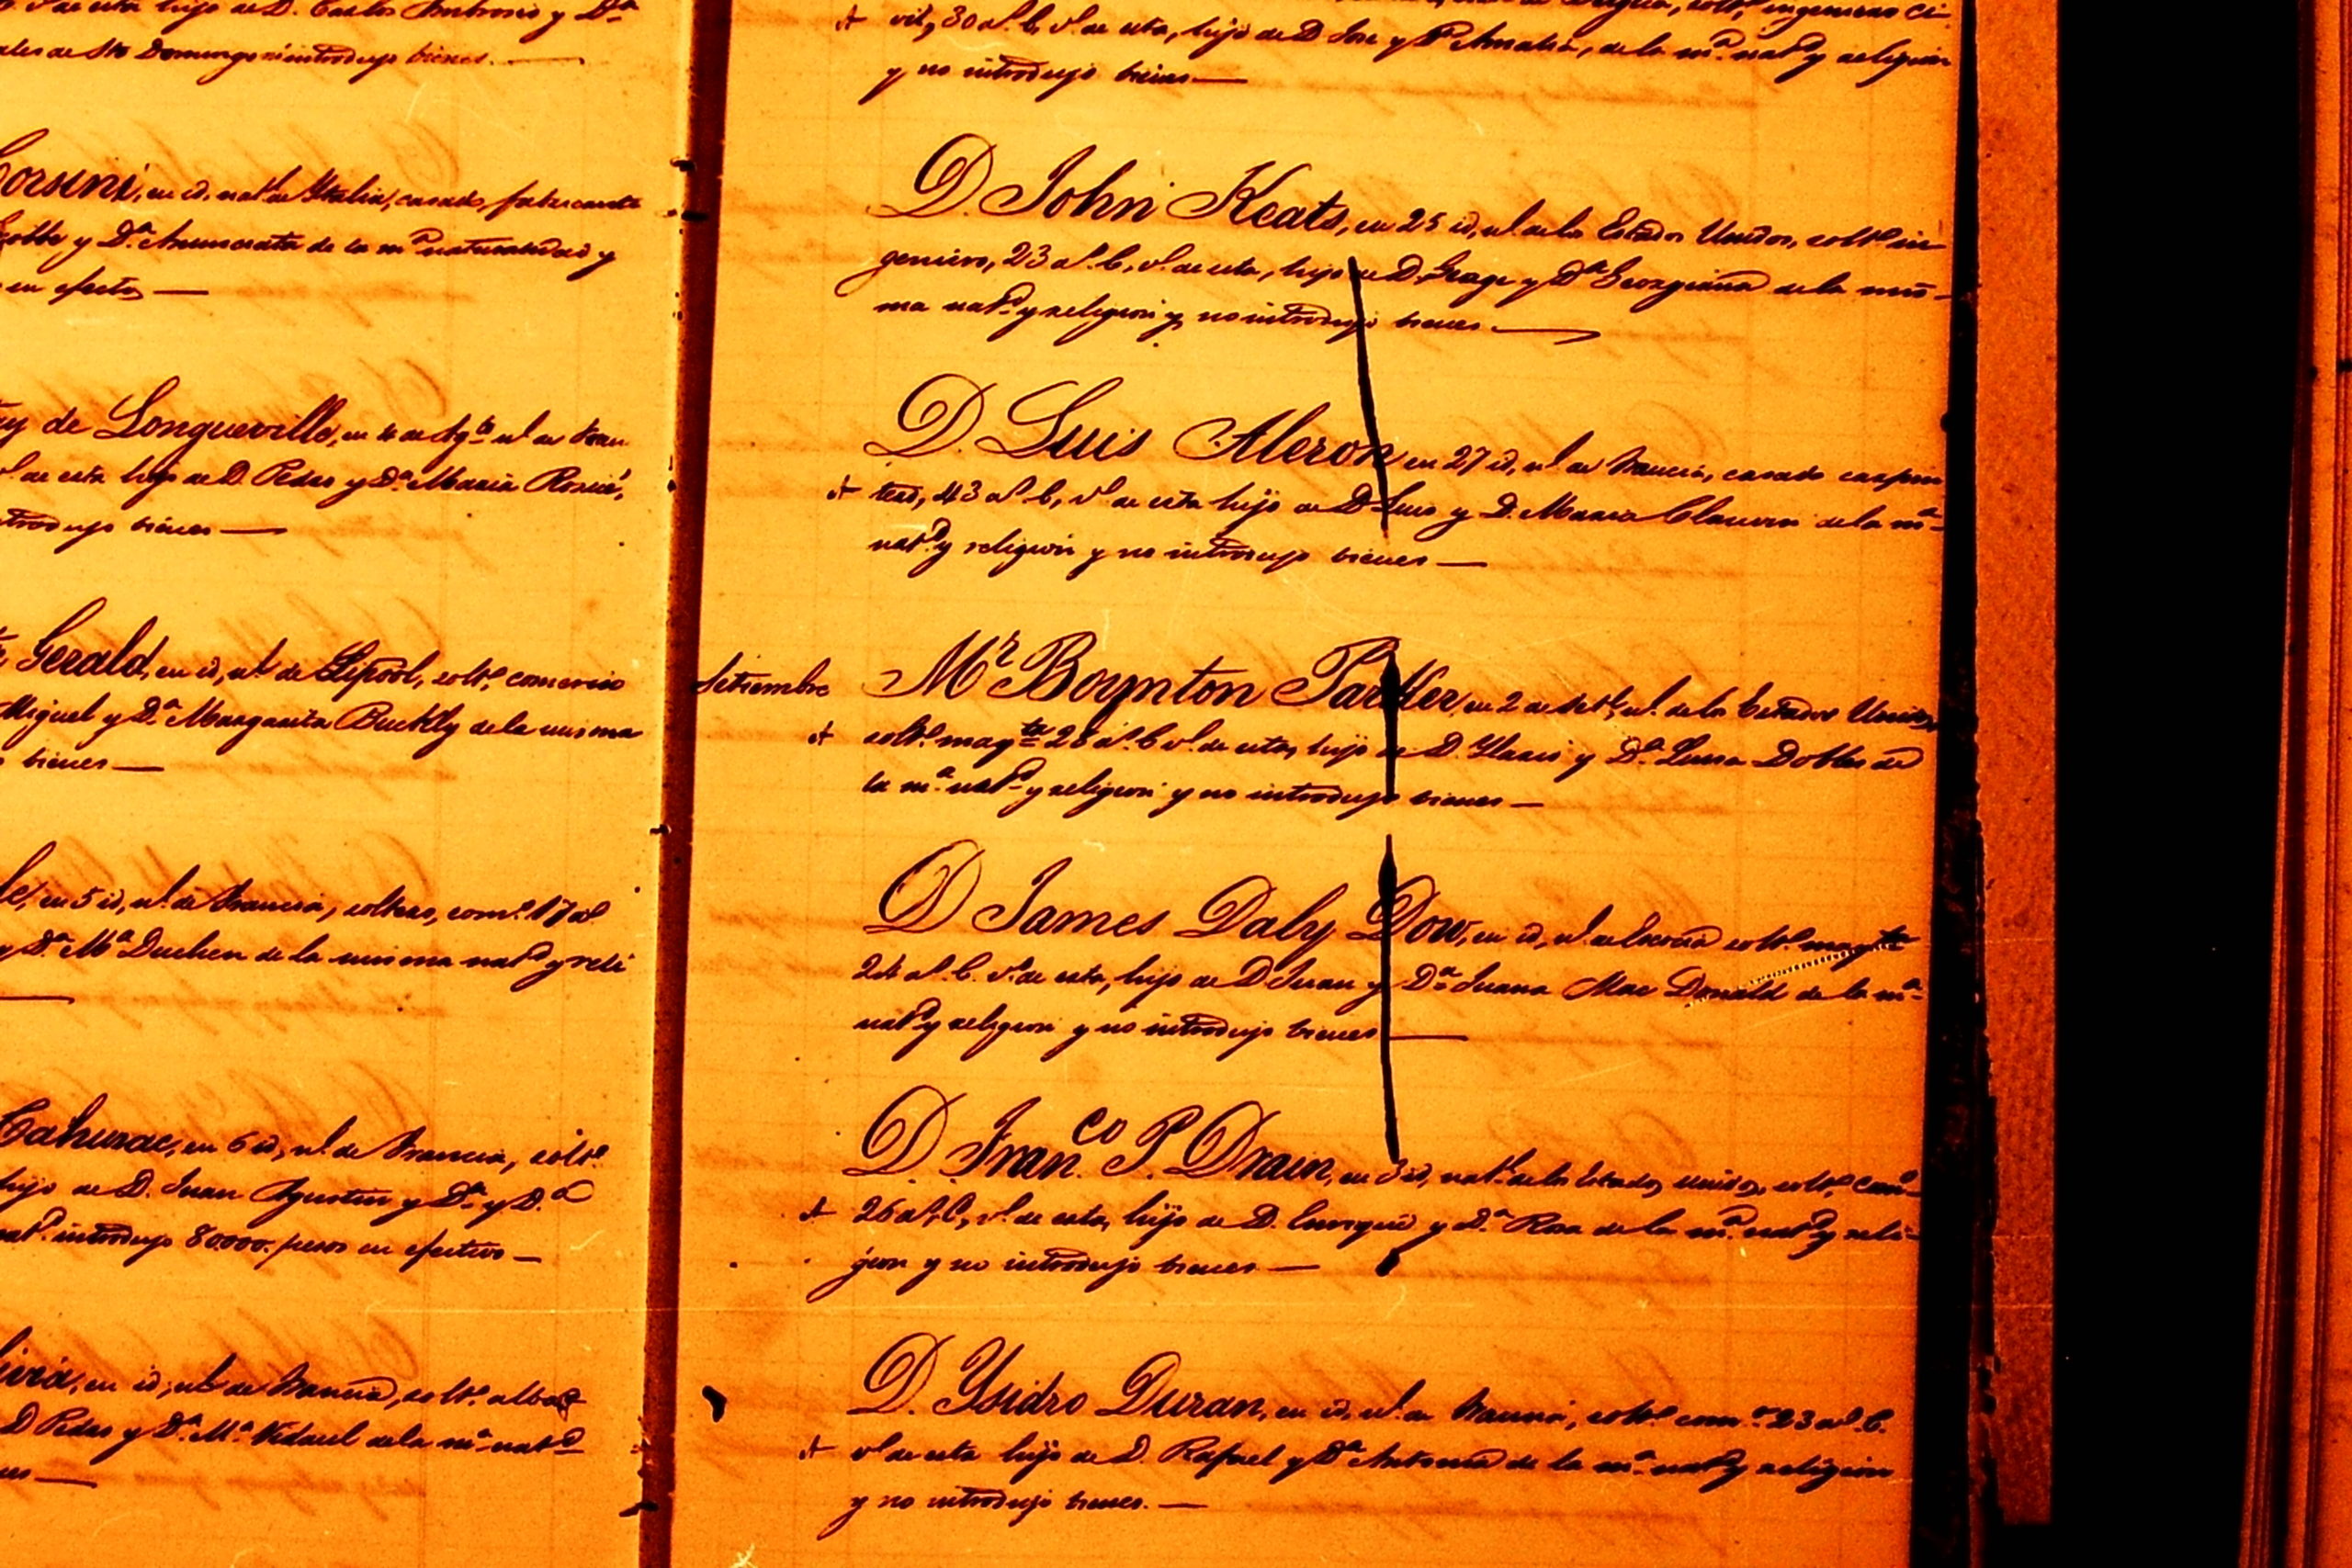 de esta hijo de D. Carlos Ambrosio y Dª
ales de Sto Domingo ni introdujo bienes.
orsini, en id, natl de Italia, casado, fabricante
y Dª Anunciata de la mª naturalidad y
en efectos
y de Longueville, en 4 de Agto nl de Fran
l de esta hijo de D. Pedro y Dª Maria Rosié,
trodujo bienes
Gerald, en id, nl de Lipool, solto, comercio
Miguel y Dª Margarita Buckly de la misma
bienes
le, en 5 id, nl de Francia, soltero, como 17 al
y Dª Mª Duchen de la misma natd y reli
Cahuzac, en 6 id, nl de Francia, solto
hijo de D. Juan Agustin y Dª y D.ª
natd introdujo 80000 pesos en efectivo
en id, nl de Francia, solto albañ
D Pedro y Dª Mª Vidaul de la mª natd
ingeniero ci-
vil, 30 al. C, vl de esta, hijo de D Jose y Dª Amalia, de la mª natd y religion
y no introdujo bienes
D. John Keats, en 25 id, nl de los Estados Unidos, solto in
geniero, 23 al. C, vl de esta, hijo de D. Geage y Dª Georgiana de la mis-
ma natd y religion y no introdujo bienes.
D. Luis Aleron en 27 id, nl de Francia, casado carpin
tero, 43 al C, vl de esta hijo de D Luis y D. Maria Clauven de la mª
natd y religion y no introdujo bienes
Setiembre
Mr Boynton Parker, en 2 de Sete, nl. de los Estados Unidos,
solto maqte 28 al. C vl. de esta, hijo de D. y Dª Luisa Dobles de
la mª natd y religion y no introdujo bienes
D James Daly Dow, en id, nl. de Escocia solto maqte
24 al. C. vl de esta, hijo de D Juan y Dª Juana Mac Donald de la mª
natd y religion y no introdujo bienes
D. Franco P. Drain, en 3 id, natl de los Estados unidos, solto, como
26 al C, vl de esta, hijo de D. Enrique y Dª Rosa de la mª natd y reli-
gion y no introdujo bienes
D. Ysidro Duran, en id, nl. de Francia, solto como 23 al C.
vl de esta hijo de D. Rafael y Dª Antonia de la mª natd y religion
y no introdujo bienes.